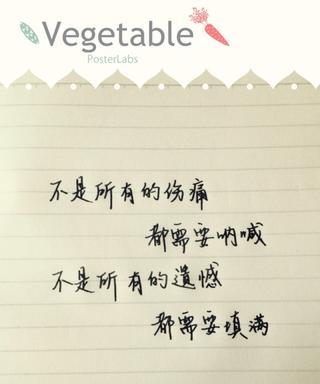 Vegetable
PosterLabs
不是所有的伤痛
都需要呐喊
不是所有的遗憾
都需要填满